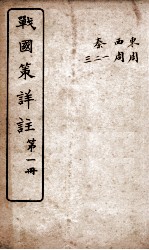 東周
西周
秦一二三
戰國策詳註
第一冊